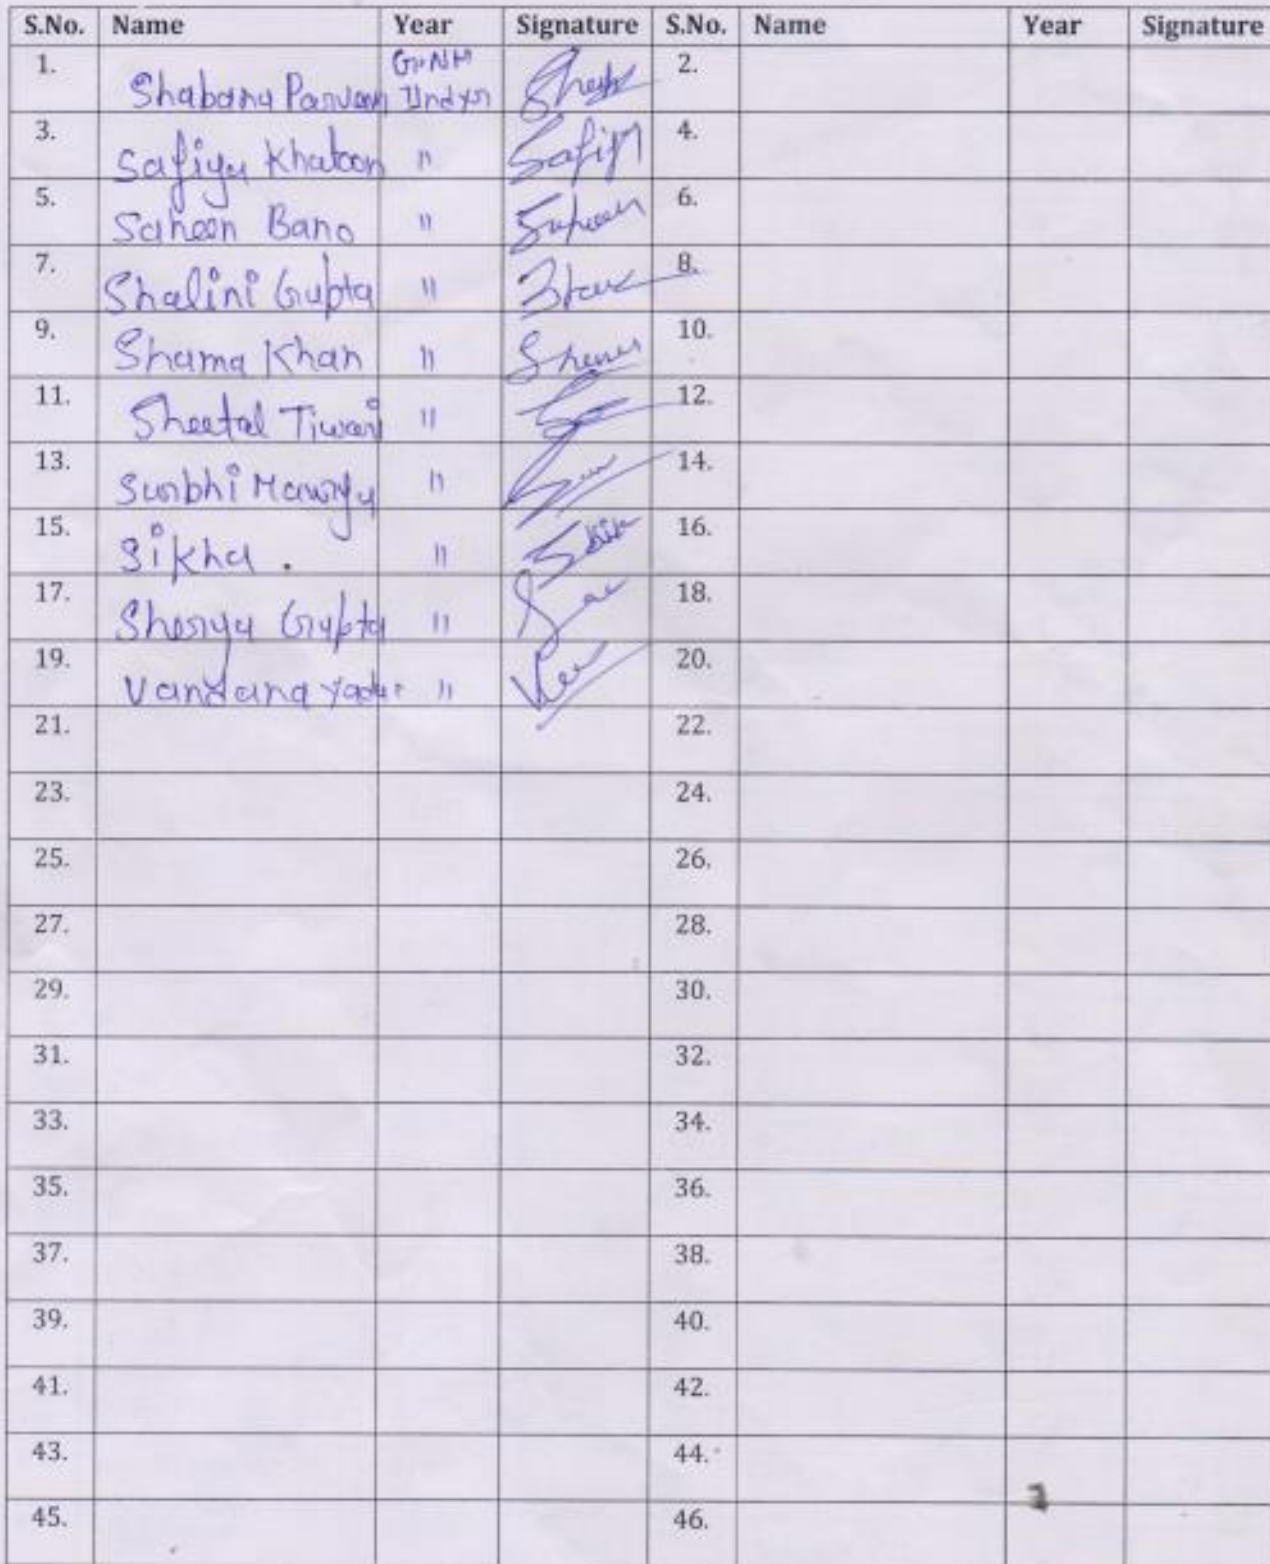 S.No. Name Year Signature S.No. Name Year Signature
1. Shabana Parveen GNM IInd yr 2.
3. Safiya Khatoon " Safiya 4.
5. Saheen Bano " Saheen 6.
7. Shalini Gupta " 8.
9. Shama Khan " 10.
11. Sheetal Tiwari " 12.
13. Surbhi Maurya " 14.
15. Sikha . " 16.
17. Shreya Gupta " 18.
19. Vandana Yadav " 20.
21. 22.
23. 24.
25. 26.
27. 28.
29. 30.
31. 32.
33. 34.
35. 36.
37. 38.
39. 40.
41. 42.
43. 44.
45. 46.